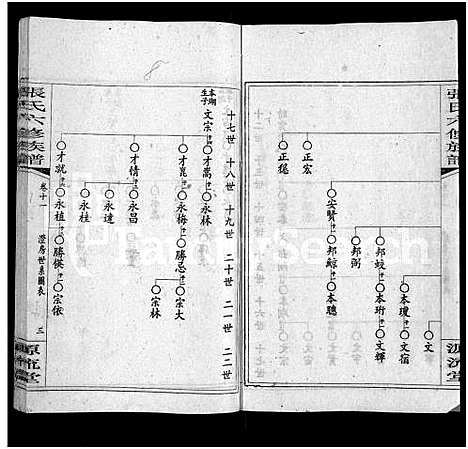 張氏六修族譜
正宏
正巍
安賢
邦鯨
本聰
邦弼
邦蛟
本珩
文輝
本瓊
文宿
文
十七世 十八世 十九世 二十世 二一世 二二世
本瑚生子
文宗
才嵩
永林
才崑
永梅
勝忠
宗大
宗林
才情
永昌
永達
永桂
才就
永植
勝俊
宗依
張氏六修族譜
卷十一
澄房世系圖表
三
源流堂